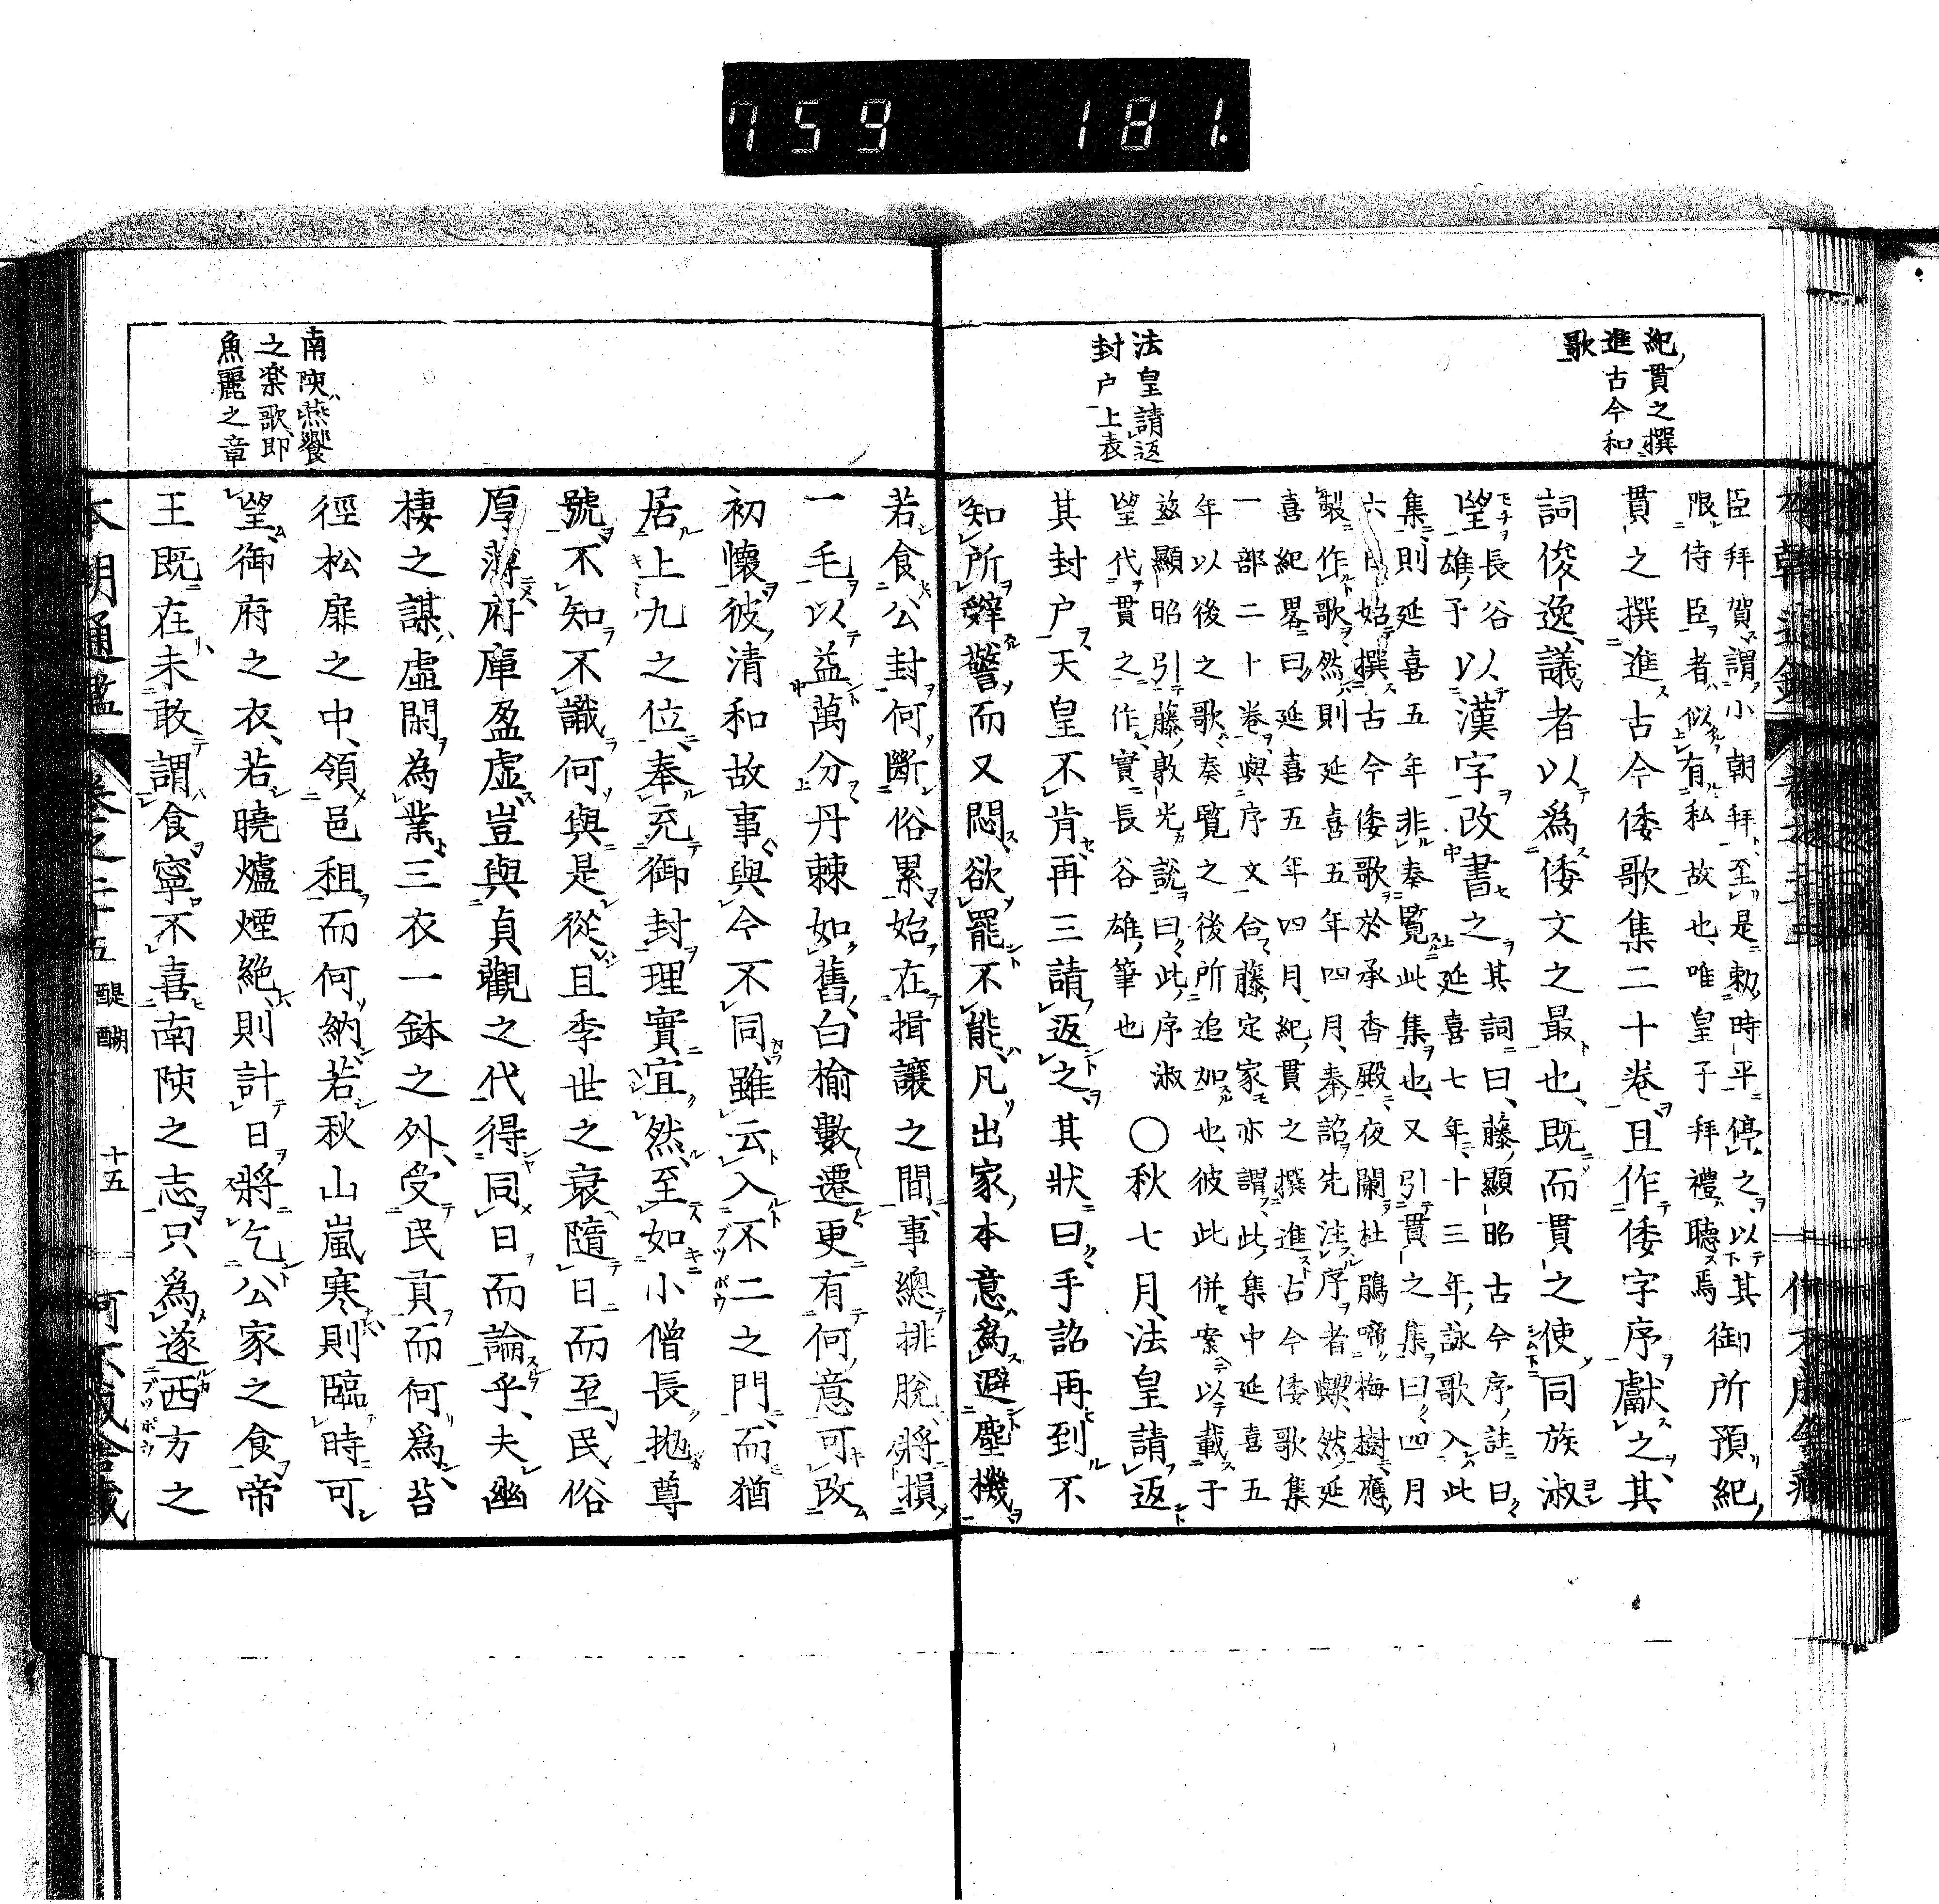 759 181.
紀貫之撰
進古今和
歌
法皇請返
封户上表
臣拜賀謂小朝拜至是勅時平停之以其
限侍臣者似有私故也唯皇子拜禮聽焉
御所預紀
貫之撰進古今倭歌集二十卷且作倭字序獻之其
詞俊逸議者以爲倭文之最也既而貫之使同族淑
望長谷
雄予以漢字改書之其詞曰藤顯昭古今序註曰
延喜七年十三年詠歌入此
集則延喜五年非奏覽此集也又引貫之集曰四月
六日始撰古今倭歌於承香殿夜闌杜鵑啼梅樹應
製作歌然則延喜五年四月奉詔先注序者歟然延
喜紀畧曰延喜五年四月紀貫之撰進古今倭歌集
一部二十卷與序文合藤定家亦謂此集中延喜五
年以後之歌奏覽之後所追加也彼此併案以載于
兹顯昭引藤敦光說曰此序淑
望代貫之作實長谷雄筆也
〇秋七月法皇請返
其封户天皇不肯再三請返之其狀曰手詔再到不
知所辭警而又悶欲罷不能凡出家本意爲避塵機
南陔燕饗
之楽歌即
魚麗之章
若食公封何斷俗累始在揖讓之間事總排脫將損
一毛以益萬分丹棘如舊白榆數遷更有何意可改
初懷彼清和故事與今不同雖云入不二之門而猶
居上九之位奉充御封理實宜然至如小僧長拋尊
號不知不識何與是從且季世之衰隨日而至民俗
厚薄府庫盈虛豈與貞觀之代得同日而論乎夫幽
棲之謀虛閑為業三衣一鉢之外受民貢而何爲苔
徑松扉之中領邑租而何納若秋山嵐寒則臨時可
望御府之衣若曉爐煙絶則計日將乞公家之食帝
王既在未敢謂食寧不喜南陔之志只爲遂西方之
本朝通鑑 卷之二十五 醍醐 十五